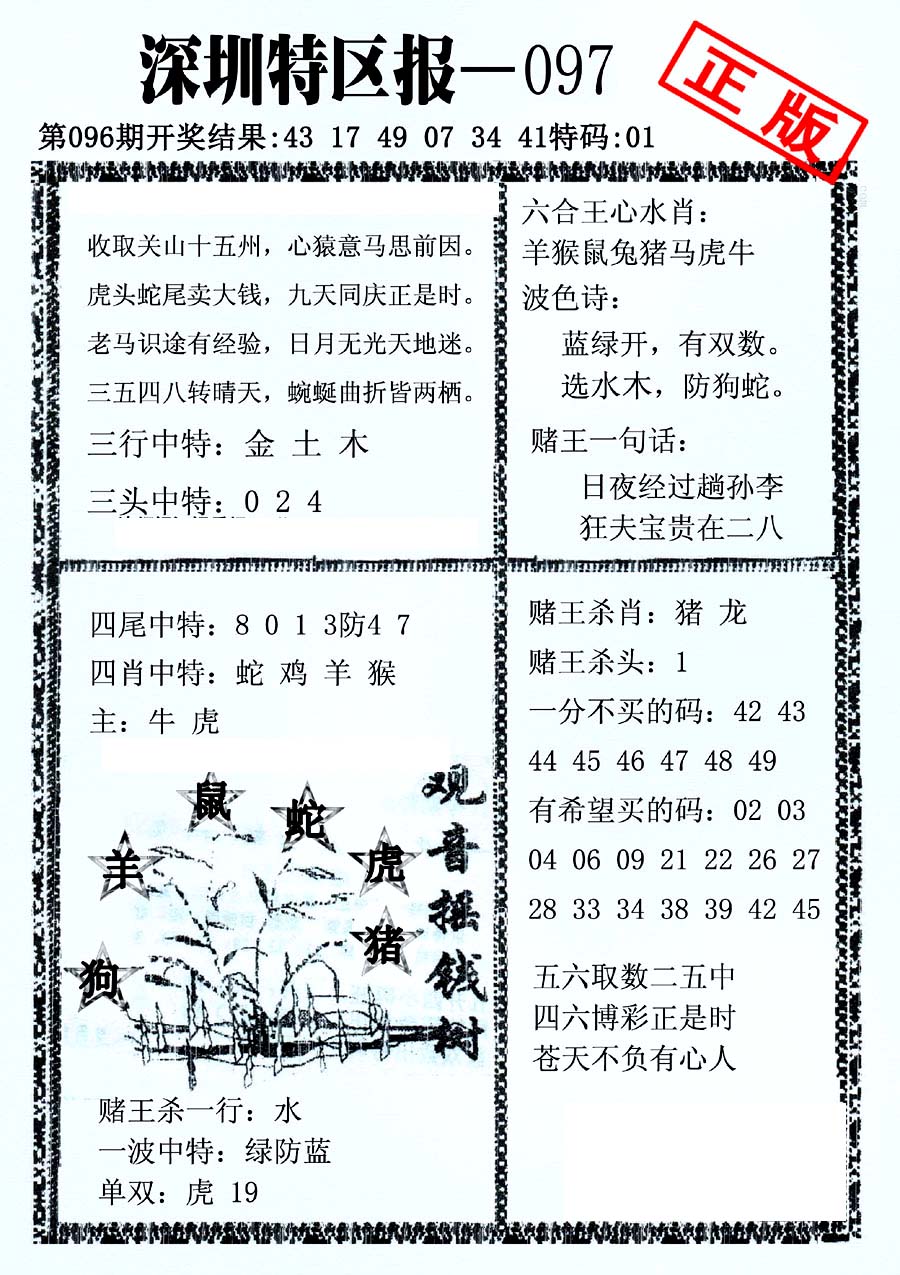 深圳特区报—097
正版
第096期开奖结果:43 17 49 07 34 41特码:01
收取关山十五州，心猿意马思前因。
虎头蛇尾卖大钱，九天同庆正是时。
老马识途有经验，日月无光天地迷。
三五四八转晴天，蜿蜒曲折皆两栖。
三行中特：金 土 木
三头中特：0 2 4
六合王心水肖：
羊猴鼠兔猪马虎牛
波色诗：
蓝绿开，有双数。
选水木，防狗蛇。
赌王一句话：
日夜经过趟孙李
狂夫宝贵在二八
四尾中特：8 0 1 3防4 7
四肖中特：蛇 鸡 羊 猴
主：牛 虎
鼠
蛇
羊
虎
猪
狗
观音摇钱树
赌王杀一行：水
一波中特：绿防蓝
单双：虎 19
赌王杀肖：猪 龙
赌王杀头：1
一分不买的码：42 43
44 45 46 47 48 49
有希望买的码：02 03
04 06 09 21 22 26 27
28 33 34 38 39 42 45
五六取数二五中
四六博彩正是时
苍天不负有心人